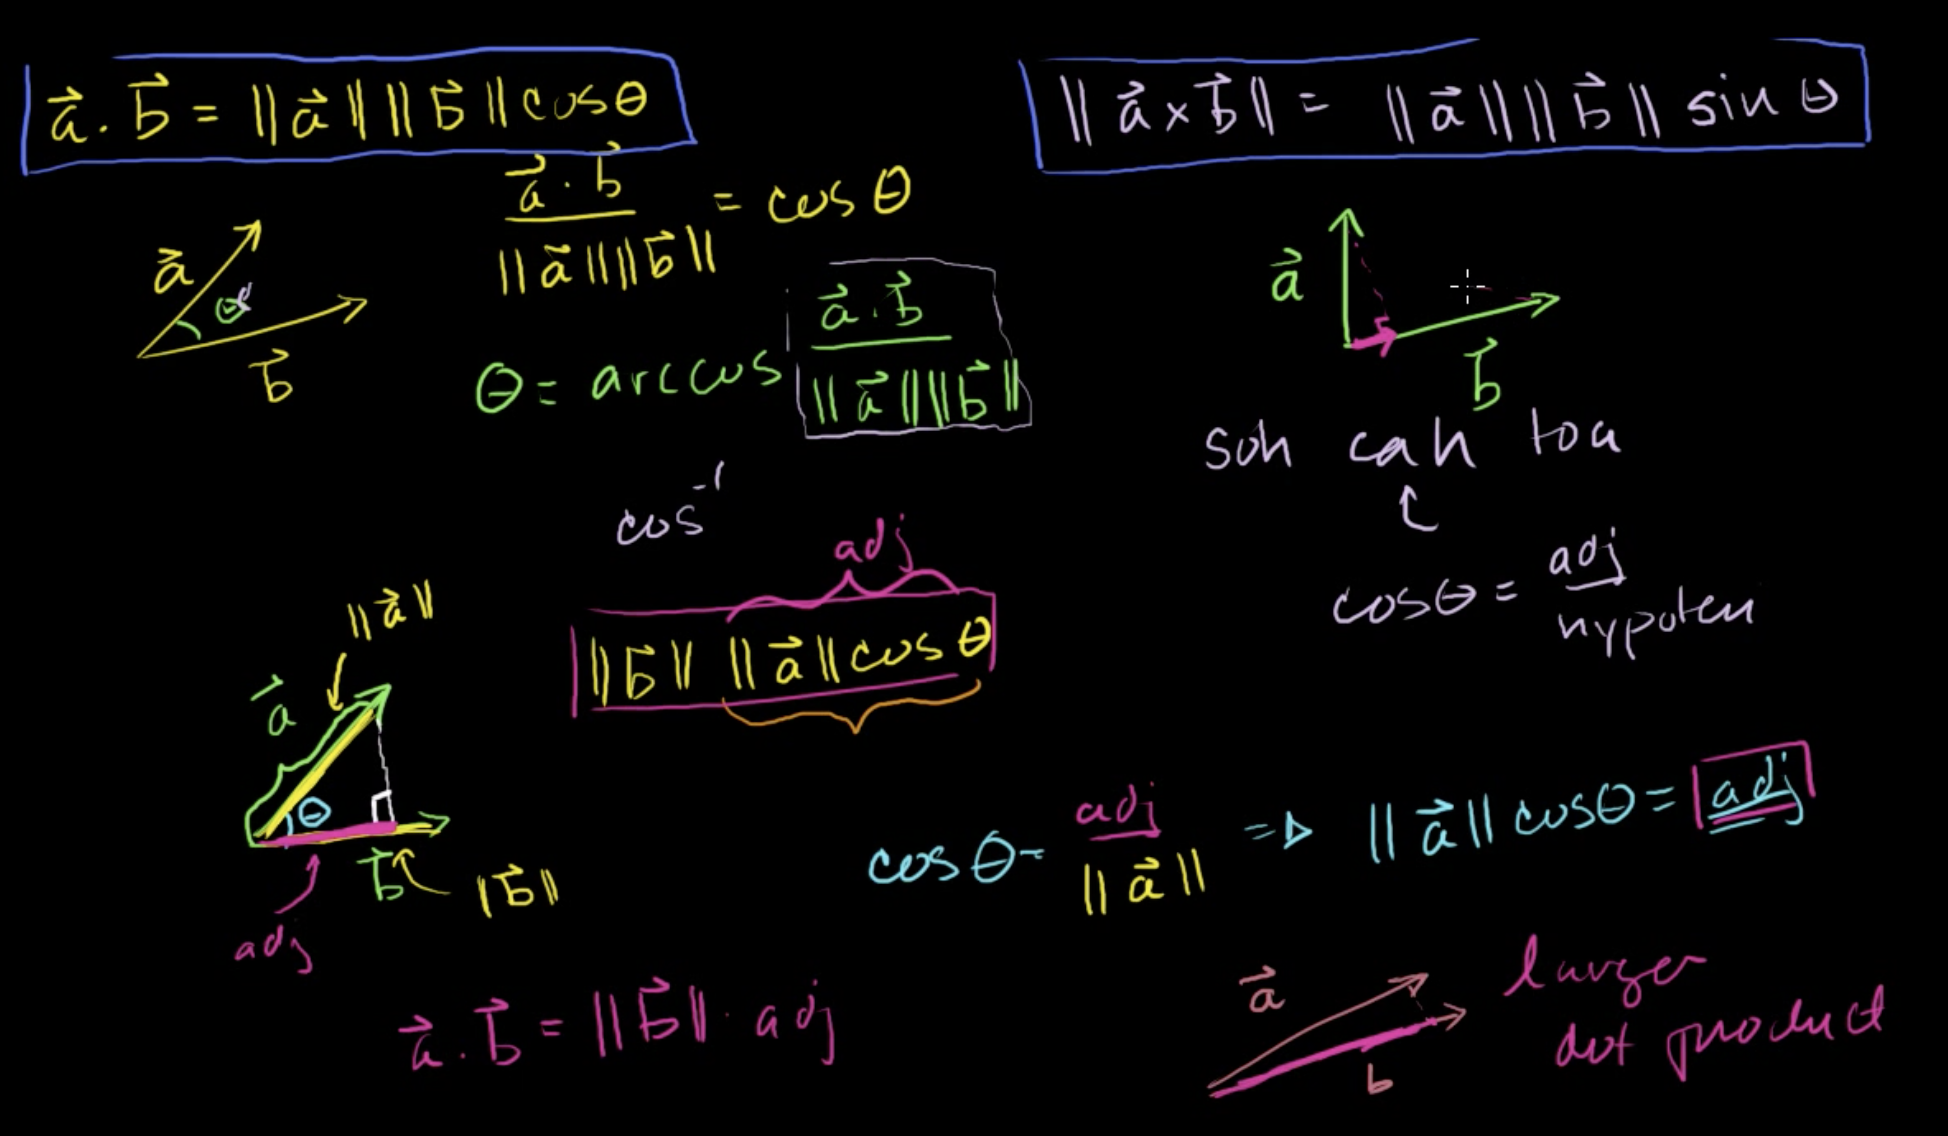 a⃗ · b⃗ = ‖a⃗‖ ‖b⃗‖ cosθ
‖a⃗ × b⃗‖ = ‖a⃗‖ ‖b⃗‖ sin θ
a⃗
θ
b⃗
a⃗ · b⃗ / ‖a⃗‖‖b⃗‖ = cos θ
θ = arccos a⃗ · b⃗ / ‖a⃗‖‖b⃗‖
cos⁻¹
a⃗
b⃗
soh cah toa
cosθ = adj / hypoten
adj
‖b⃗‖ ‖a⃗‖ cos θ
‖a⃗‖
a⃗
θ
b⃗
‖b⃗‖
adj
cos θ = adj / ‖a⃗‖ => ‖a⃗‖ cosθ = adj
a⃗ · b⃗ = ‖b⃗‖ · adj
a⃗
b
larger
dot product